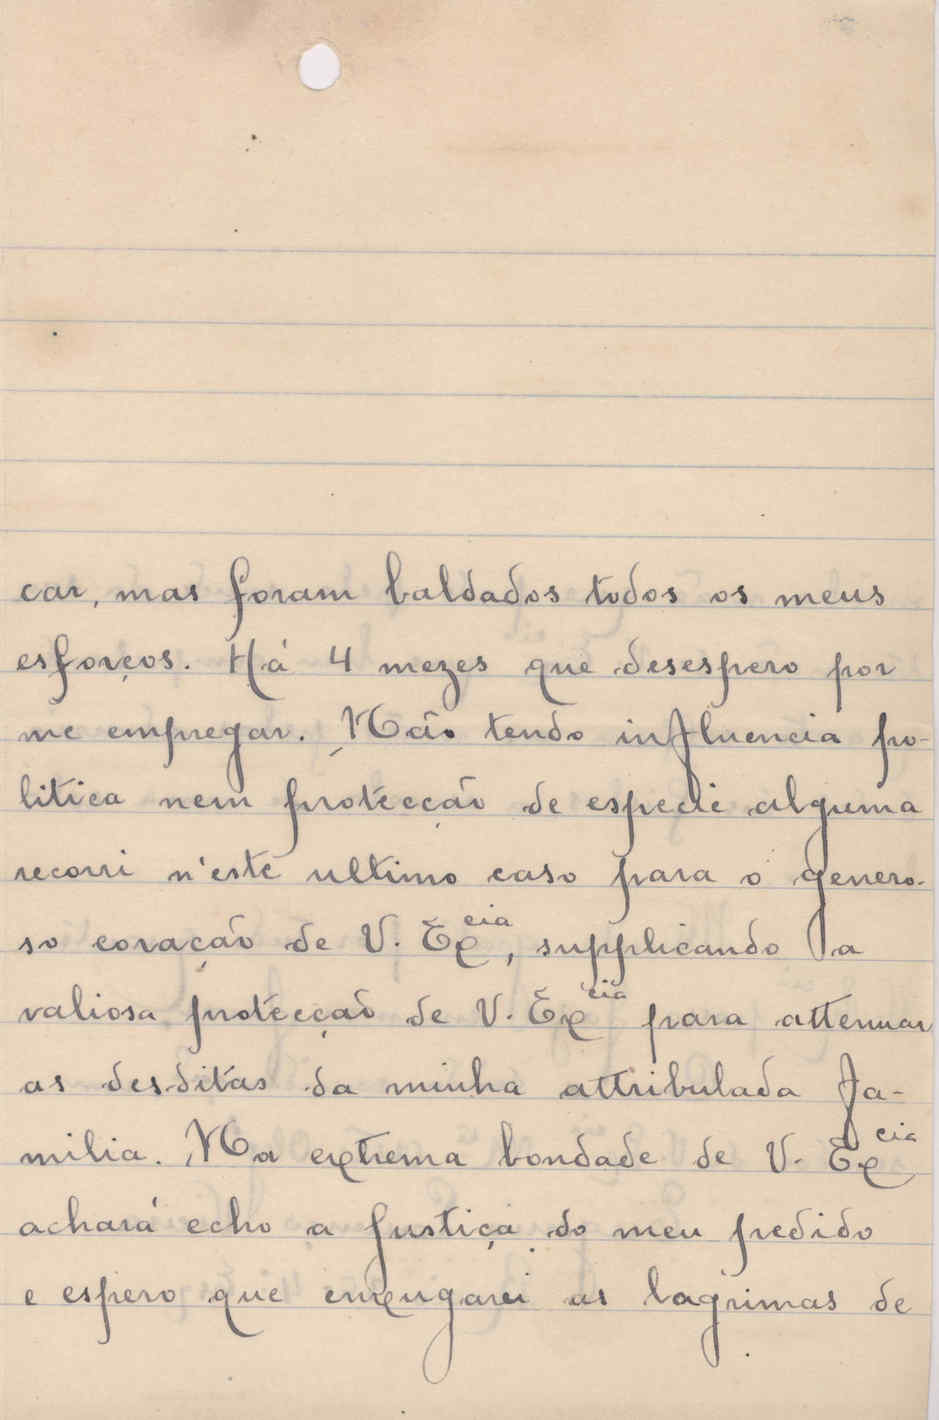 car, mas foram baldados todos os meus
esforços. Há 4 mezes que desespero por
me empregar. Não tendo influencia po-
litica nem protecção de especie alguma
recorri n'este ultimo caso para o genero-
so coração de V. Excia, supplicando a
valiosa protecção de V. Excia para attenuar
as desditas da minha attribulada fa-
milia. Na extrema bondade de V. Excia
achará echo a justiça do meu pedido
e espero que enxugarei as lagrimas de